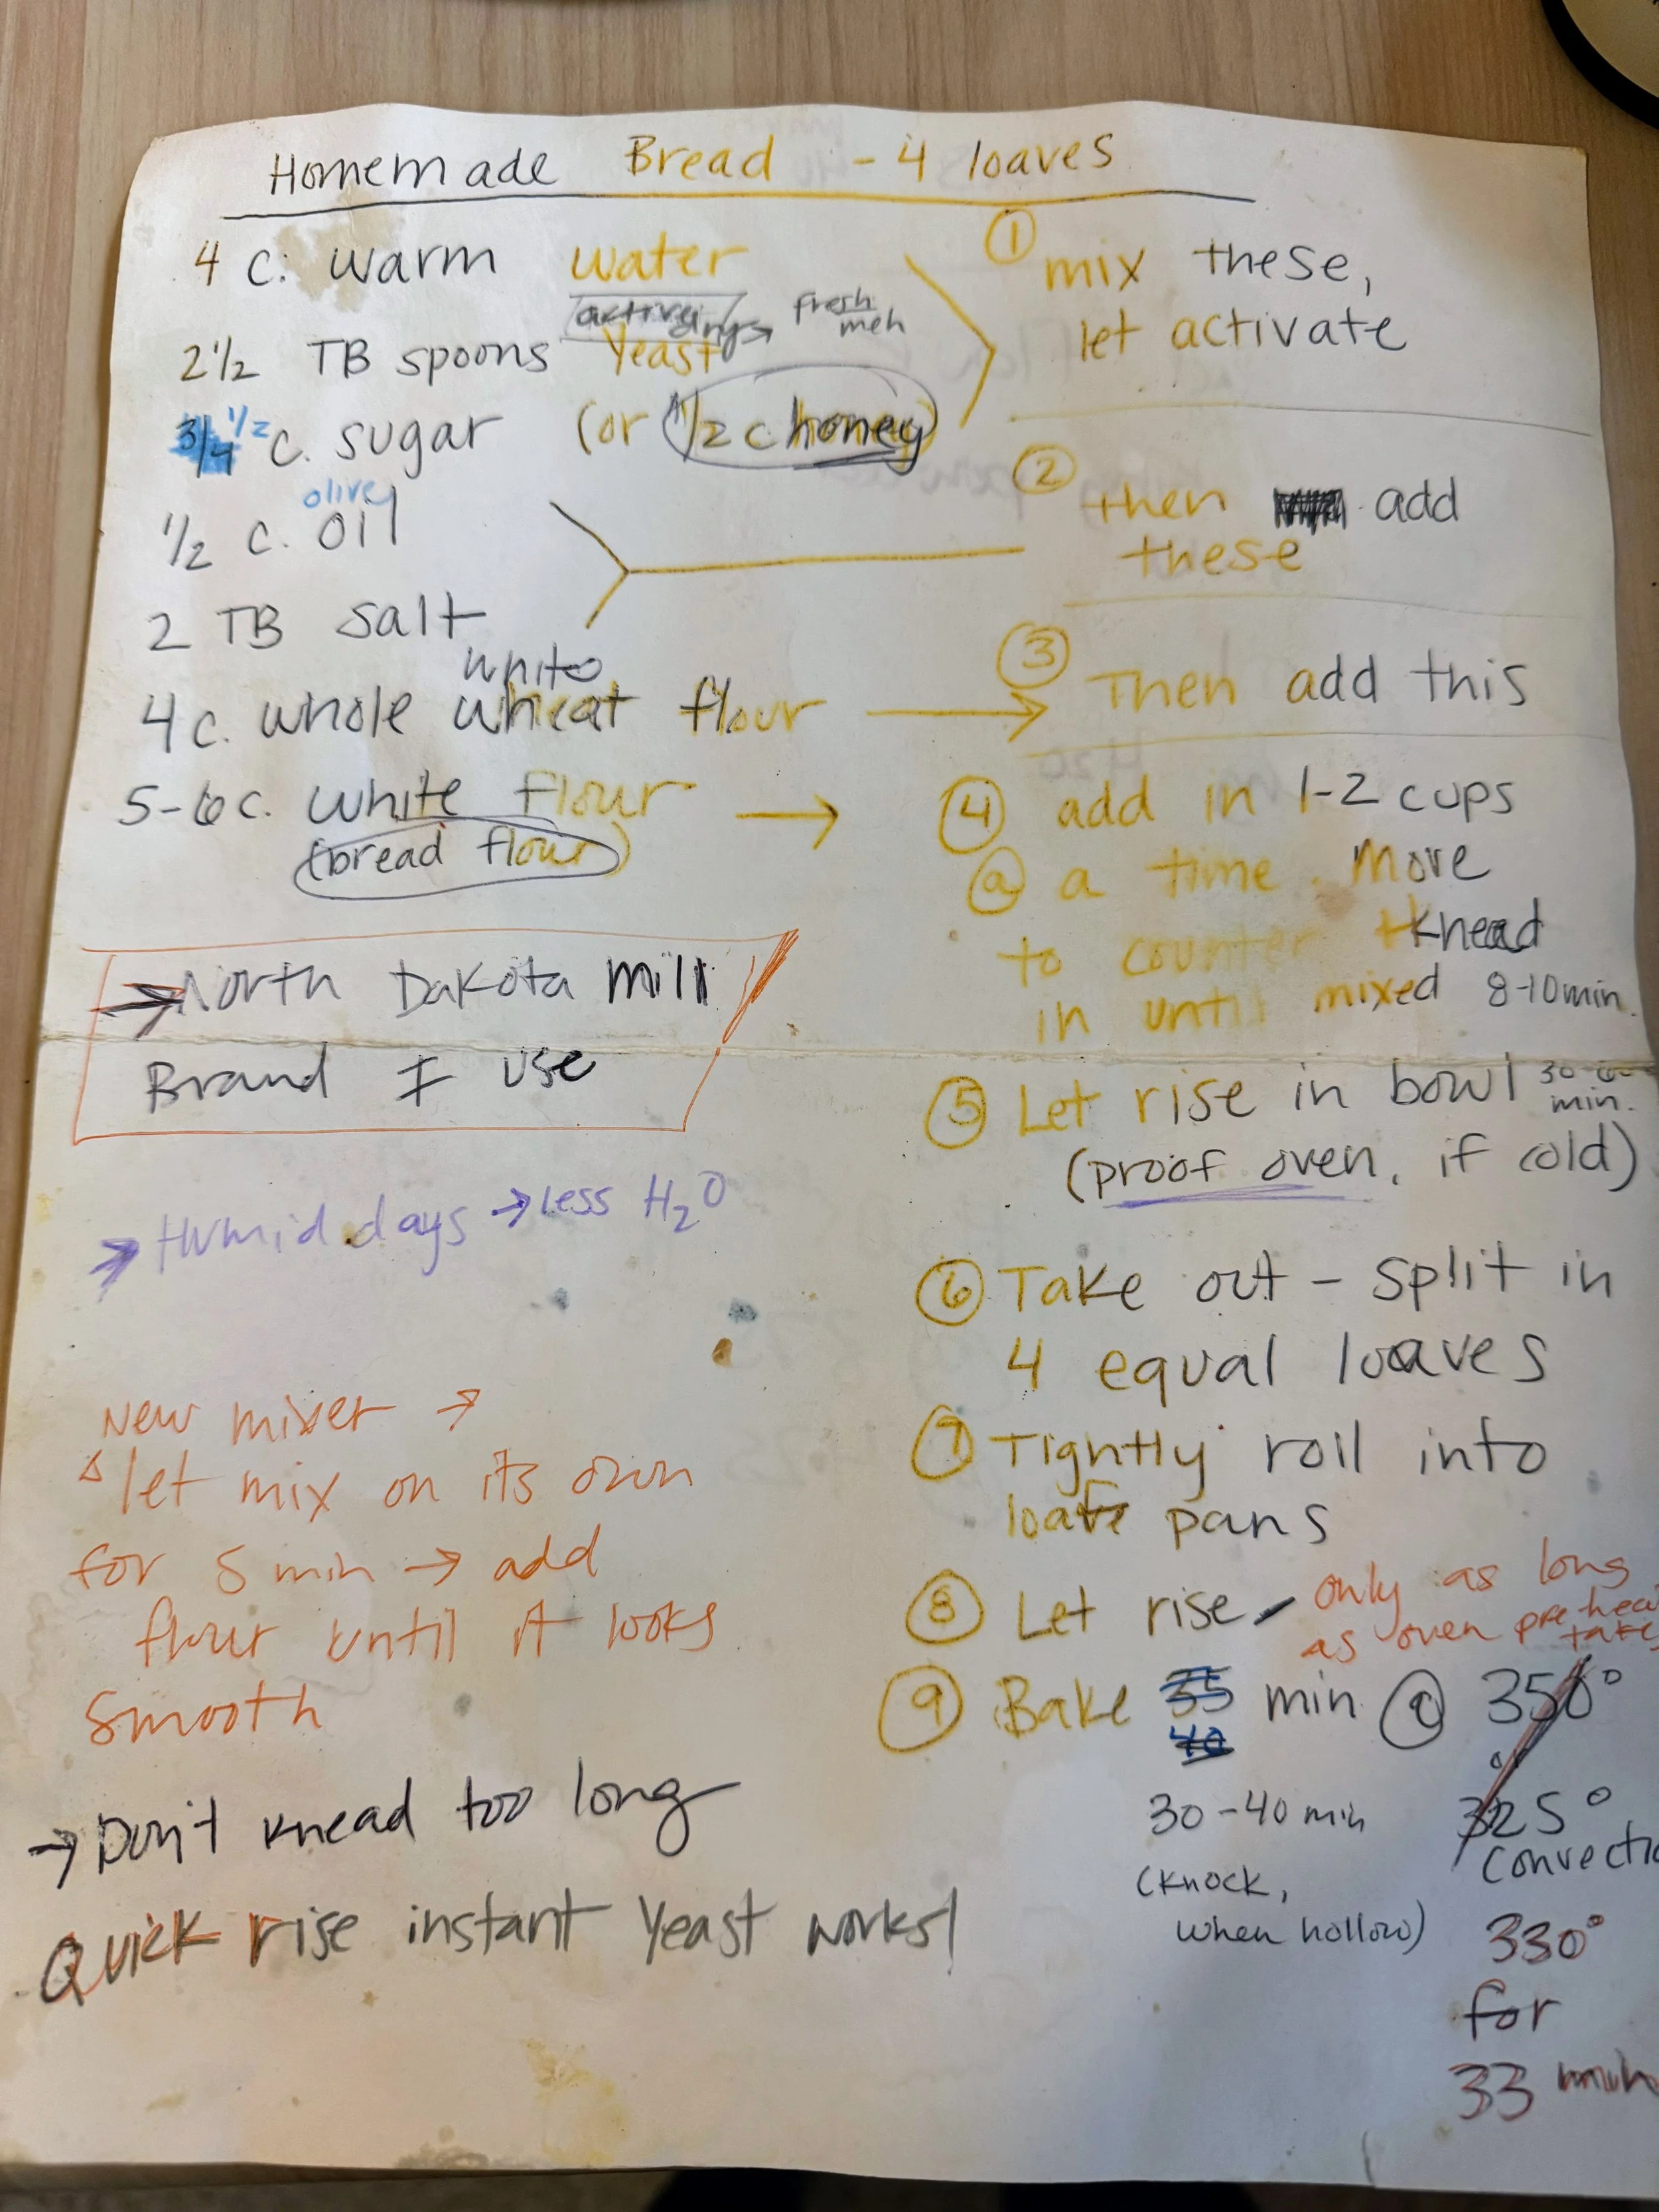 Homemade Bread - 4 loaves
4 c. warm water
active dry → fresh meh
2 1/2 TB spoons yeast
3/4 1/2 c. sugar (or 1/2 c honey)
① mix these,
let activate
olive
1/2 c. oil
2 TB salt
② then add
these
white
4 c. whole wheat flour →
③ Then add this
5-6 c. white flour →
(bread flour)
④ add in 1-2 cups
@ a time. Move
to counter knead
in until mixed 8-10 min.
→ North Dakota Mill
Brand I use
⑤ Let rise in bowl 30-60 min.
(proof oven, if cold)
→ Humid days → less H2O
⑥ Take out - split in
4 equal loaves
⑦ Tightly roll into
loaf pans
⑧ Let rise - only as long
as oven preheat takes
⑨ Bake 35 min @ 350°
40 or
30-40 min 325°
(knock, convectio
when hollow) 330°
for
33 min
New mixer →
let mix on its own
for 5 min → add
flour until it looks
smooth
→ Don't knead too long
Quick rise instant yeast works!